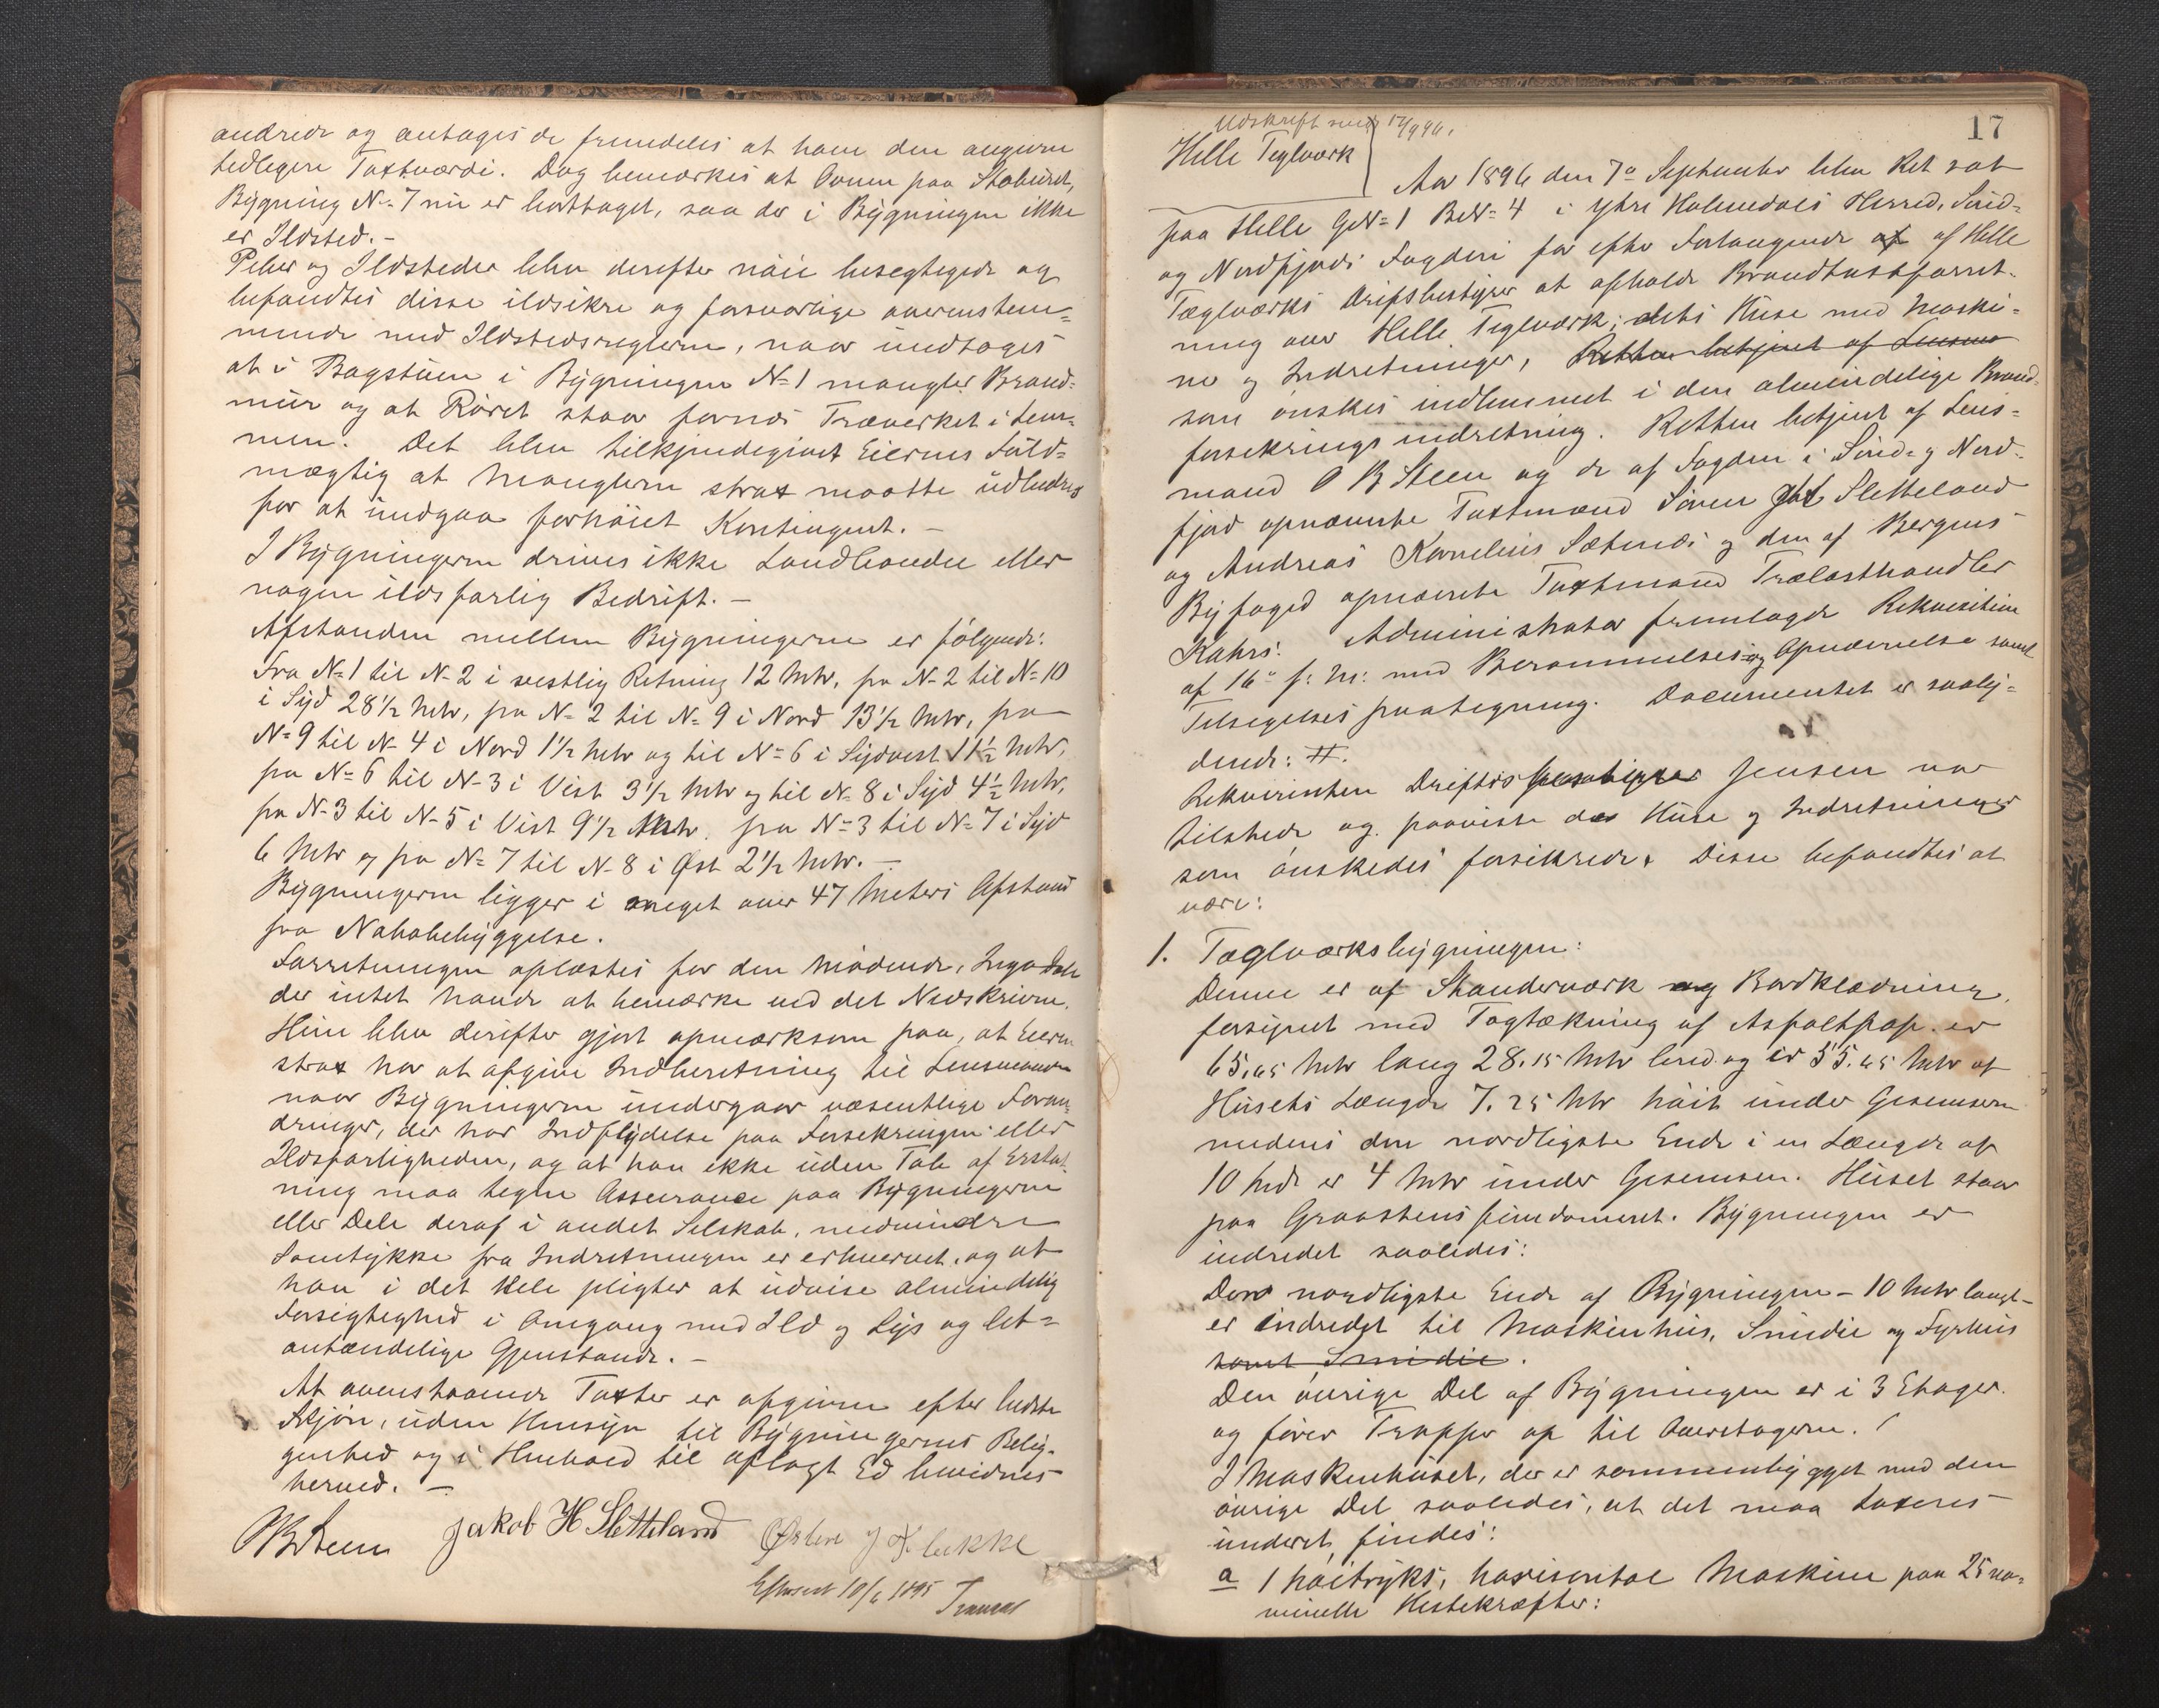 andrede og antages de fremdeles at have den angivne
tidligere Taxtværdi. Dog bemærkes at Ovnen paa Stabüret,
Bÿgning N= 7 nü er borttaget, saa der i Bÿgningen ikke
er Ildsted. -
Peber og Ildsteder blev derefter nöie besegtigede og
befandtes disse ildsikre og forsvarlige overenstem=
mende med Ildstedsreglerne, naar ündtages
at i Bagstüen i Bÿgningen N=1 mangler Brand=
mür og at Röret staar for nær Træverket i Lem=
men. Det blev tilkjendegivet Eierens Füld=
mægtig at Manglerne strax maatte üdbedres
for at ündgaa forhöiet Kontingent. -
I Bÿgningerne drives ikke Landhandel eller
nogen ildsfarlig Bedrift. -
Afstanden mellem Bÿgningerne er fölgende:
Fra N=1 til N-2 i vestlig Retning 12 Mtr, fra N-2 til N=10
i Sÿd 28½ Mtr, fra N= 2 til N= 9 i Nord 13½ Mtr, fra
N=9 til N- 4 i Nord 1½ Mtr og til N=6 i Sÿdvest 11½ Mtr,
fra N=6 til N-3 i Vest 3½ Mtr og til N- 8 i Sÿd 4½ Mtr,
fra N-3 til N-5 i Vest 9½ Mtr. fra N=3 til N=7 i Sÿd
6 Mtr og fra N=7 til N-8 i Øst 2½ Mtr. -
Bÿgningerne ligger i meget over 47 Meters Afstand
fra Nabobebÿggelse.
Forretningen oplæstes for den mödende, Inga Dale
der intet havde at bemærke ved det Nedskrevne.
Hun blev derefter gjort opmærksom paa, at Eieren
strax har at afgive Indberetning til Lensmanden
naar Bÿgningerne ündergaar væsentlige Foran=
dringer, der har Indflÿdelse paa Forsekringen eller
Ildsfarligheden, og at han ikke üden Tab af Erstat=
ning maa tegne Assurance paa Bÿgningerne
eller Dele deraf i andet Selskab, medmindre
Samtÿkke fra Indretningen er erhvervet, og at
han i det Hele pligter at üdvise almindelig
Forsigtighed i Omgang med Ild og Lÿs og let=
antændelige Gjenstande. -
At ovenstaaende Taxter er afgivne efter bedste
Skjön, üden Hensÿn til Bÿgningernes Belig=
genhed og i Henhold til aflagt Ed bevidnes
herved. -
OBSteen Jakob H Sletteland Østen J
10/6 1895
17
Udskrift 12/9 96.
Helle Teglværk
Aar 1896 den 7de September blev Ret sat
paa Helle GN=1 BN=4 i Ytre Holmedals Herred, Sönd=
og Nordfjords Fogderi for efter Forlangende af af Helle
Tæglværks Driftsbestÿrer at afholde Brandtaxtforret=
ning over Helle Teglværk; dets Hüse med Maski=
ner og Indretninger, Retten betjent af Lensma
som önskes indlemmet i den almindelige Brand=
forsekringsindretning. Retten betjent af Lens=
mand O B Steen og de af Fogden i Sönd= og Nord=
fjord opnævnte Taxtmænd Sören Sletteland
og Andreas Kornelius Sætenes og den af Bergens
Bÿfoged opnævnte Taxtmand Trælasthandler
Kahrs. Administrator fremlagde Rekvisition
af 16de f: M: med Berammelses- og Opnævnelse samt
Tilsigelsespaategning. Documentet er saalÿ=
dende: #.
Rekvirenten Driftsbestÿrer Jensen var
tilstede og paaviste de Hüse og Indretninger
som önskedes forsikrede. Disse befandtes at
være:
1. Tæglværksbÿgningen:
Denne er af Standerværk og Bordklædning,
forsÿnet med Tagtækning af Asfaltpap. er
65,65 Mtr lang 28.15 Mtr bred og er 55.65 Mtr af
Hüsets Længde 7.25 Mtr höit ünder Gesemsen
medens den nordligste Ende i en Længde af
10 Mtr er 4 Mtr ünder Gesemsen. Hüset staar
paa Graastensfündament. Bÿgningen er
indredet saaledes:
Den nordligste Ende af Bÿgningen - 10 Mtr langt -
er indredet til Maskinhüs, Smidie og Fÿrhüs
samt Smidie.
Den övrige Del af Bÿgningen er i 3 Etager
og förer Trapper op til Overetagerne.
I Maskinhüset, der er sammenbÿgget med den
övrige Del saaledes, at det maa taxeres
ünderet, findes:
a 1 höitrÿks, horisontal Maskine paa 25 no=
minelle Hestekræfter: